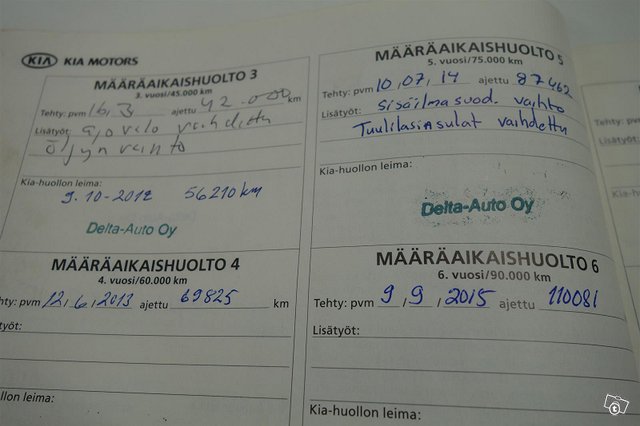 KIA KIA MOTORS
MÄÄRÄAIKAISHUOLTO 3
3. vuosi/45.000 km
Tehty: pvm 16,3 ajettu 42.000 km
Lisätyöt: ajovalo vaihdettu
öljyn vaihto
Kia-huollon leima:
9.10-2012 56210 km
Delta-Auto Oy
MÄÄRÄAIKAISHUOLTO 4
4. vuosi/60.000 km
hty: pvm 12,6,2013 ajettu 69825 km
työt:
ollon leima:
MÄÄRÄAIKAISHUOLTO 5
5. vuosi/75.000 km
Tehty: pvm 10,07,14 ajettu 87462
Lisätyöt: sisäilmasuod. vaihto
Tuulilasinsulat vaihdettu
Kia-huollon leima:
Delta-Auto Oy
MÄÄRÄAIKAISHUOLTO 6
6. vuosi/90.000 km
Tehty: pvm 9,9,2015 ajettu 110081
Lisätyöt:
Kia-huollon leima:
Tehty:
Lisätyöt
Kia-h